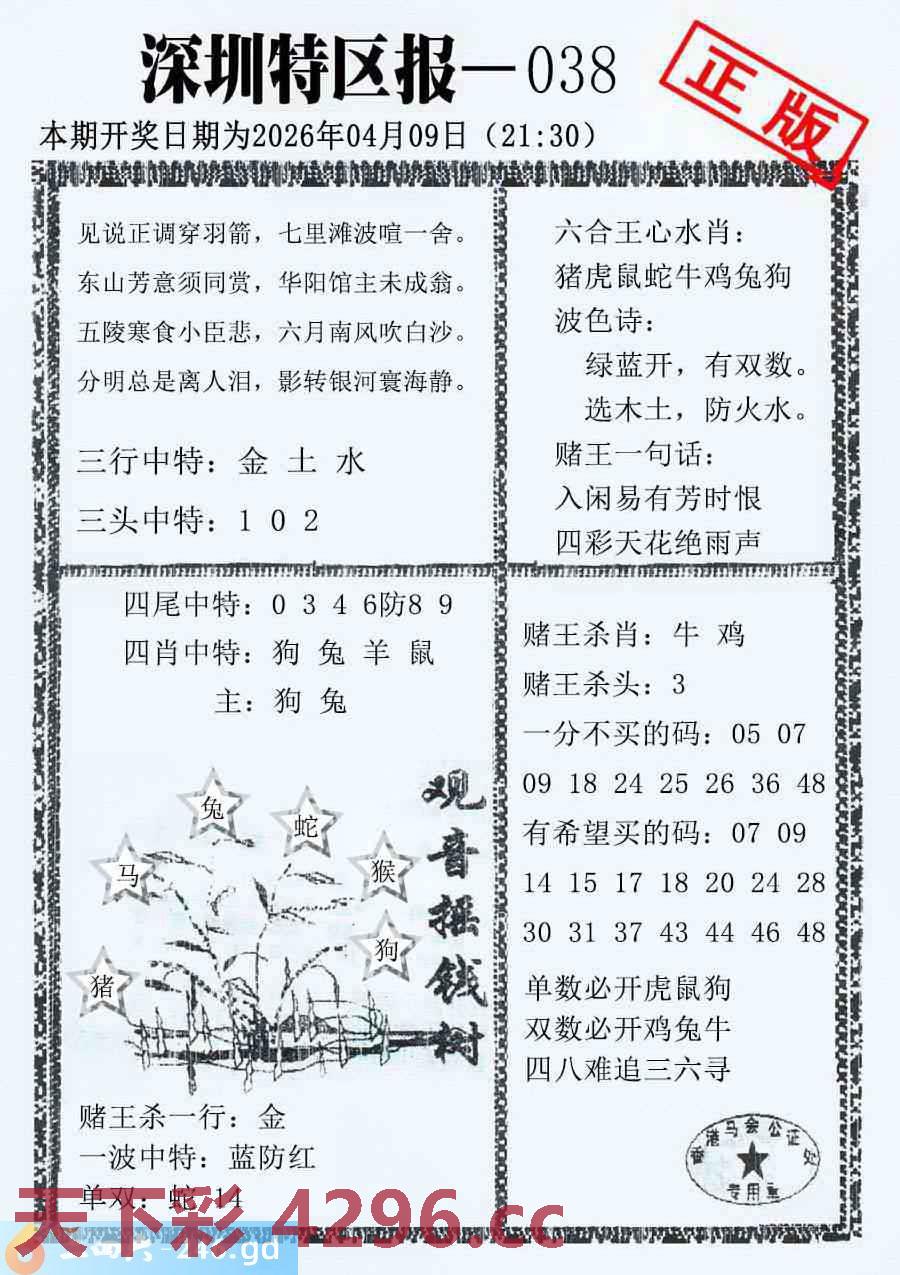 深圳特区报—038
正版
本期开奖日期为2026年04月09日（21:30）
见说正调穿羽箭，七里滩波喧一舍。
东山芳意须同赏，华阳馆主未成翁。
五陵寒食小臣悲，六月南风吹白沙。
分明总是离人泪，影转银河寰海静。
三行中特：金 土 水
三头中特：1 0 2
六合王心水肖：
猪虎鼠蛇牛鸡兔狗
波色诗：
绿蓝开，有双数。
选木土，防火水。
赌王一句话：
入闲易有芳时恨
四彩天花绝雨声
四尾中特：0 3 4 6防8 9
四肖中特：狗 兔 羊 鼠
主：狗 兔
观音摇钱树
兔
蛇
马
猴
狗
猪
赌王杀一行：金
一波中特：蓝防红
单双：蛇 14
赌王杀肖：牛 鸡
赌王杀头：3
一分不买的码：05 07
09 18 24 25 26 36 48
有希望买的码：07 09
14 15 17 18 20 24 28
30 31 37 43 44 46 48
单数必开虎鼠狗
双数必开鸡兔牛
四八难追三六寻
香港马会公证处
专用章
天下彩 4296.cc